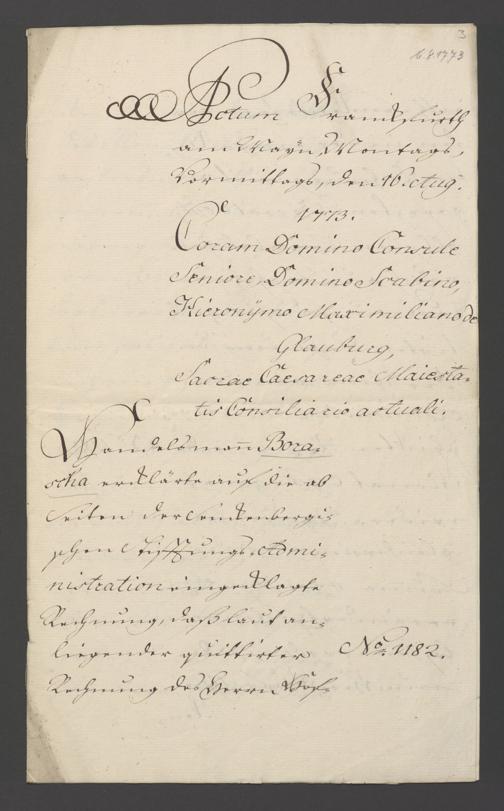 3
16.8.1773
Actum Franckfurth
am Mayn, Montags,
Vormittags, den 16. Aug.
1773.
Coram Domino Consule
Seniore, Domino Scabino,
Hieronÿmo Maximiliano de
Glauburg,
Sacrae Caesareae Maiesta-
tis Consiliario actuali.
Handelsmann Bora-
scha erklärte auf die ab
Seiten der Senckenbergi-
schen Stifftungs-Admi-
nistration eingeklagte
Rechnung, daß laut an-
liegender quittirter No. 1182.
Rechnung des Herrn